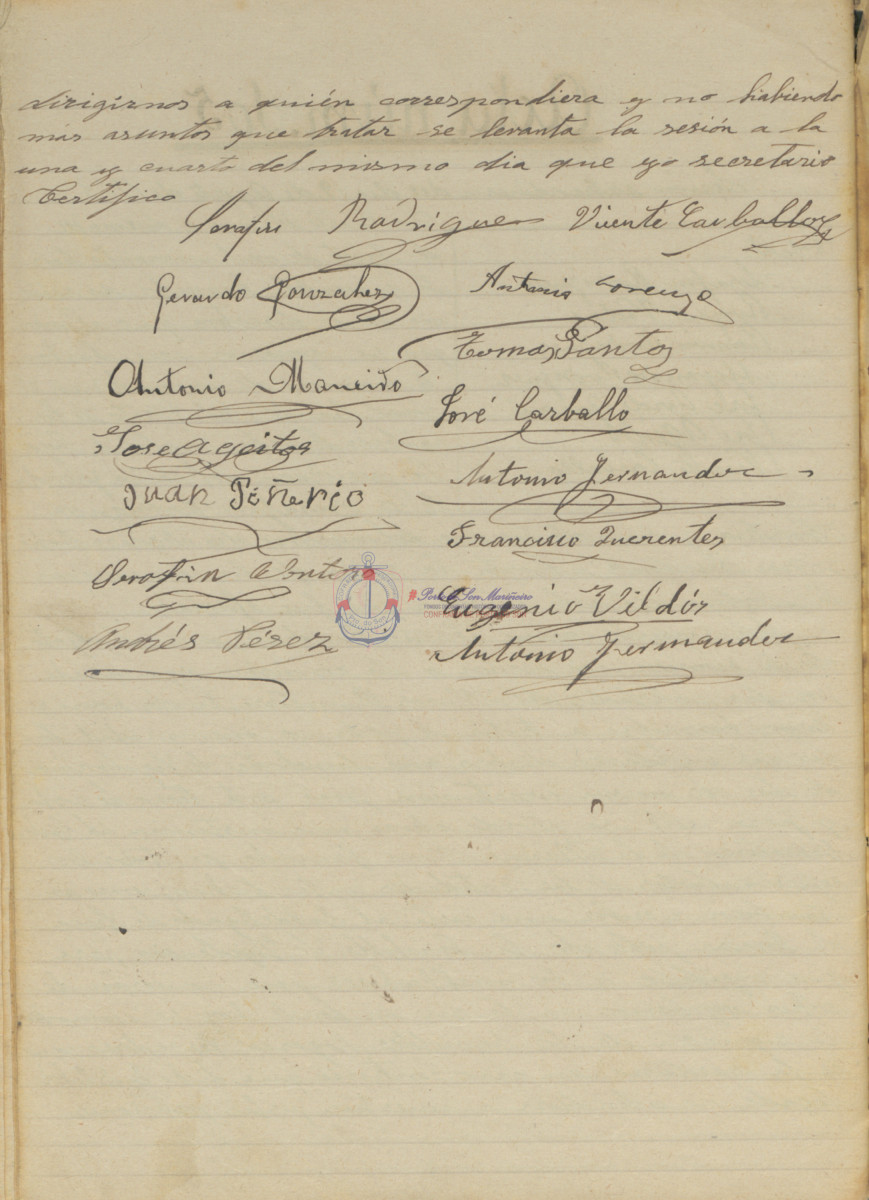 dirigirnos a quién correspondiera y no habiendo
mas asuntos que tratar se levanta la sesión a la
una y cuarto del mismo dia que yo secretario
Certifico
Serafin Rodrigue Vicente Carballo
Gerardo Gonzalez Antonio Lorenzo
Tomas Santos
Antonio Maneiro
José Carballo
Jose Ageitos
Antonio Fernandez
Juan Piñeric
Francisco Querentes
Serafin
Porto do Son Mariñeiro
Eugenio Vildós
Andrés Pérez
Antonio Fernandez